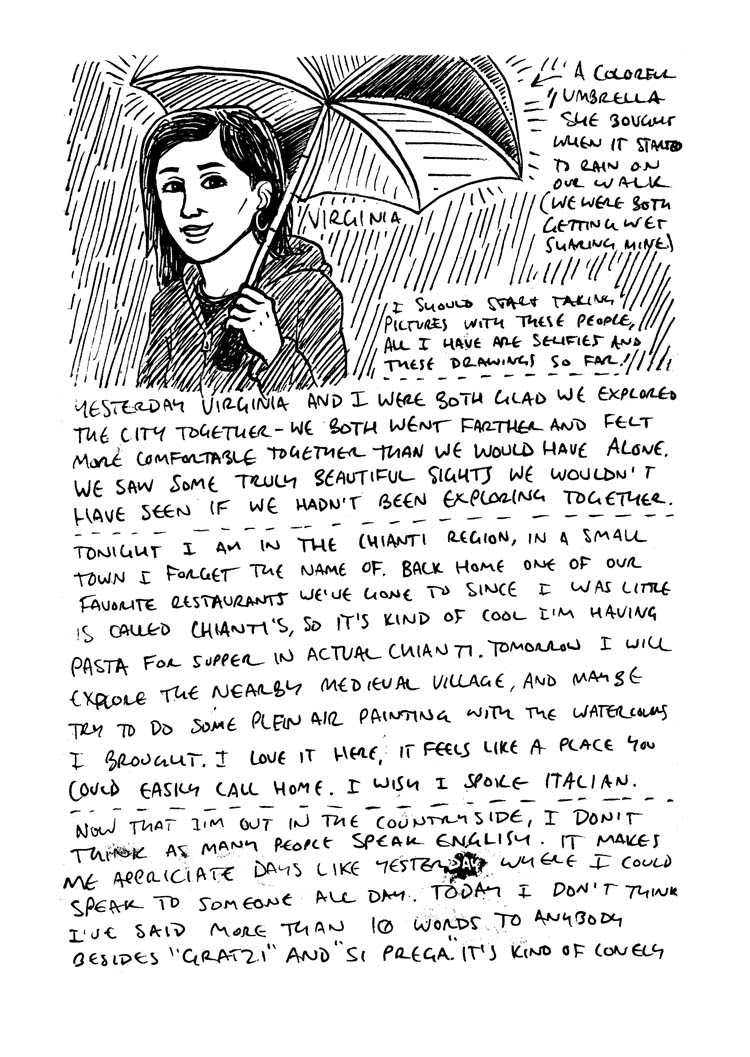 A COLORFUL
UMBRELLA
SHE BOUGHT
WHEN IT STARTED
TO RAIN ON
OUR WALK
(WE WERE BOTH
GETTING WET
SHARING MINE.)
VIRGINIA
I SHOULD START TAKING
PICTURES WITH THESE PEOPLE,
ALL I HAVE ARE SELFIES AND
THESE DRAWINGS SO FAR!
YESTERDAY VIRGINIA AND I WERE BOTH GLAD WE EXPLORED
THE CITY TOGETHER - WE BOTH WENT FARTHER AND FELT
MORE COMFORTABLE TOGETHER THAN WE WOULD HAVE ALONE.
WE SAW SOME TRULY BEAUTIFUL SIGHTS WE WOULDN'T
HAVE SEEN IF WE HADN'T BEEN EXPLORING TOGETHER.
TONIGHT I AM IN THE CHIANTI REGION, IN A SMALL
TOWN I FORGET THE NAME OF. BACK HOME ONE OF OUR
FAVORITE RESTAURANTS WE'VE GONE TO SINCE I WAS LITTLE
IS CALLED CHIANTI'S, SO IT'S KIND OF COOL I'M HAVING
PASTA FOR SUPPER IN ACTUAL CHIANTI. TOMORROW I WILL
EXPLORE THE NEARBY MEDIEVAL VILLAGE, AND MAYBE
TRY TO DO SOME PLEIN AIR PAINTING WITH THE WATERCOLORS
I BROUGHT. I LOVE IT HERE, IT FEELS LIKE A PLACE YOU
COULD EASILY CALL HOME. I WISH I SPOKE ITALIAN.
NOW THAT I'M OUT IN THE COUNTRYSIDE, I DON'T
THINK AS MANY PEOPLE SPEAK ENGLISH. IT MAKES
ME APPRICIATE DAYS LIKE YESTERDAY WHERE I COULD
SPEAK TO SOMEONE ALL DAY. TODAY I DON'T THINK
I'VE SAID MORE THAN 10 WORDS TO ANYBODY
BESIDES "GRATZI" AND "SI PREGA." IT'S KIND OF LONELY